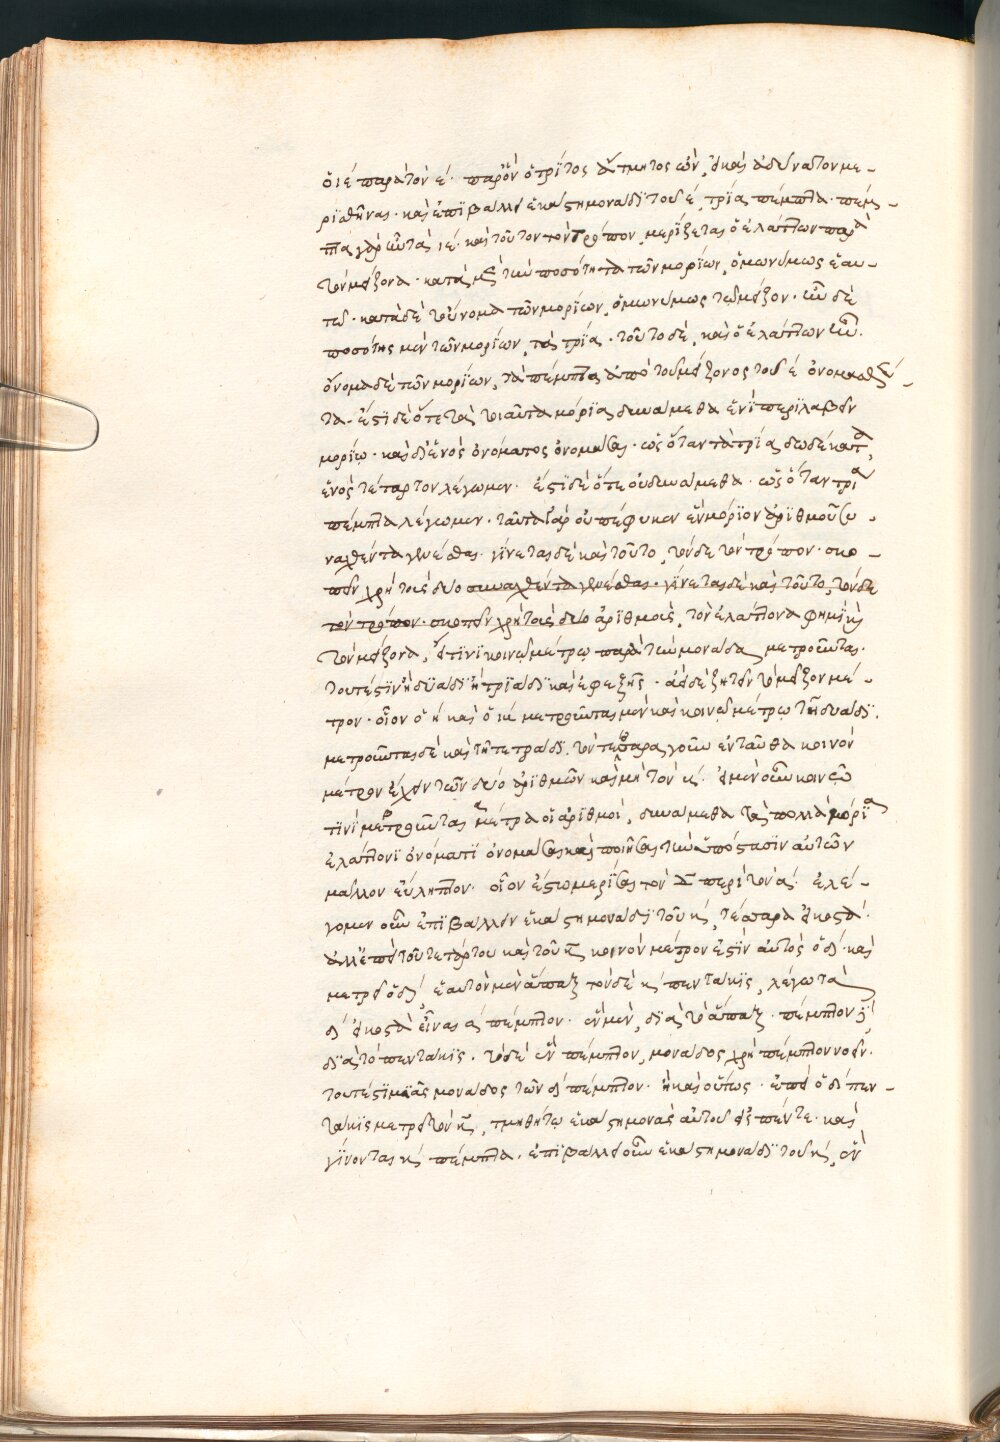 ὁ ιέ παρὰ τὸν έ· παρ' ὃν ὁ τρίτος ἄτμητος ὢν, εἰ καὶ ἀδύνατον με-
ρισθῆναι· καὶ ἐπιβάλλει ἑκάστῃ μονάδι τοῦ έ, τρία πέμπτα· πέμ-
πτα γὰρ ὄντα ιέ· καὶ τοῦτον τὸν τρόπον, μερίζεται ὁ ἐλάττων παρὰ
τὸν μείζονα· κατὰ μὲν τὴν ποσότητα τῶν μορίων, ὁμωνύμως ἑαυ-
τῷ· κατὰ δὲ τοὔνομα τῶν μορίων, ὁμωνύμως τῷ μείζον· ὧν δὲ
ποσότης μὲν τῶν μορίων, τὰ τρία· τοῦτο δὲ, καὶ ὁ ἐλάττων ἦν·
ὄνομα δὲ τῶν μορίων, τὰ πέμπτα ἀπὸ τοῦ μείζονος τοῦ έ ὀνομασθέν-
τα· ἔστι δὲ ὅτε τὰ τοιαῦτα μόρια δυνάμεθα ἑνὶ περιλαβεῖν
μορίῳ· καὶ δι' ἑνὸς ὀνόματος ὀνομάσαι· ὡς ὅταν τὰ τρία δωδέκατα,
ἑνὸς τέταρτον λέγωμεν· ἔστι δὲ ὅτε οὐ δυνάμεθα· ὡς ὅταν τρία
πέμπτα λέγωμεν· ταῦτα γὰρ οὐ πέφυκεν ἓν μόριον ἀριθμοῦ συ-
ναχθέντα γενέσθαι· γίνεται δὲ καὶ τοῦτο, τόνδε τὸν τρόπον· σκο-
πεῖν χρὴ τοὺς δύο συναχθέντα γενέσθαι· γίνεται δὲ καὶ τοῦτο, τόνδε
τὸν τρόπον· σκοπεῖν χρὴ τοὺς δύο ἀριθμοὺς, τὸν ἐλάττονα φημὶ καὶ
τὸν μείζονα, εἴ τινι κοινῷ μέτρῳ παρὰ τὴν μονάδα μετροῦνται·
τουτέστιν ἢ δυάδι ἢ τριάδι καὶ ἐφεξῆς· ἀεὶ δὲ ζητεῖν τὸ μεῖζον μέ-
τρον· οἷον ὁ ή καὶ ὁ κ μετροῦνται μὲν καὶ κοινῷ μέτρῳ τῇ δυάδι.
μετροῦνται δὲ καὶ τῇ τετράδι. τὸν τέσσαρα γοῦν ἐνταῦθα κοινὸν
μέτρον ἔχειν τῶν δύο ἀριθμῶν καὶ μὴ τὸν κ. εἰ μὲν οὖν κοινῷ
τινὶ μετροῦνται μέτρα οἱ ἀριθμοὶ, δυνάμεθα τὰ πολλὰ μόρια
ἐλάττονι ὀνόματι ὀνομάσαι καὶ ποιῆσαι τὴν ὑπόστασιν αὐτῶν
μᾶλλον εὔληπτον· οἷον ἔστω μερίσαι τὸν δ περὶ τὸν κ· ἐλέ-
γομεν οὖν ἐπιβάλλειν ἑκάστῃ μονάδι τοῦ κ, τέσσαρα εἰκοστά·
ἀλλ' ἐπεὶ τοῦ τετάρτου καὶ τοῦ κ κοινὸν μέτρον ἐστὶν αὐτὸς ὁ δ· καὶ
μετρεῖ ὁ δ, ἑαυτὸν μὲν ἅπαξ τὸν δὲ κ πεντάκις, λέγω τὰ
δ εἰκοστὰ εἶναι α πέμπτον· ἓν μὲν, διὰ τὸ ἅπαξ· πέμπτον δ
διὰ τὸ πεντάκις· τὸ δὲ ἓν πέμπτον, μονάδος χρὴ πέμπτον νοεῖν·
τουτέστι μιᾶς μονάδος τῶν δ πέμπτον· ἢ καὶ οὕτως· ἐπεὶ ὁ δ πεν-
τάκις μετρεῖ τὸν κ, τμηθήτω ἑκάστη μονὰς αὐτοῦ εἰς πέντε· καὶ
γίνονται κ πέμπτα· ἐπιβάλλει οὖν ἑκάστῃ μονάδι τοῦ κ, ἓν